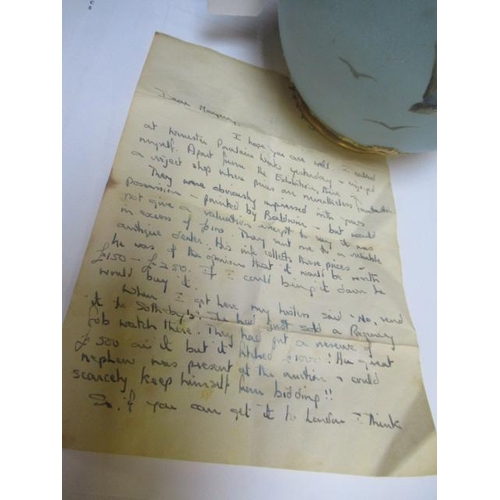 Dear Maxpery,
I hope you are well - called
at Worcester Porcelain Works yesterday & enjoyed
myself. Apart from the Exhibition, there is
a reject shop where prices are nonetheless
They were obviously impressed with your
possession - painted by Baldwin - but would
not give a valuation except to say it was
in excess of £100. They sent me to a reliable
antique dealer. His wife collects those pieces -
he was of the opinion that it would be worth
£150 - £250. If I could bring it down he
would buy it.
When I got here my hostess said - No, send
it to Sotheby's! She had just sold a Regency
fob watch there. They had put a reserve of
£500 on it but it fetched £1000! Her great
nephew was present at the auction & could
scarcely keep himself from bidding!!
So, if you can get it to London - Thanks